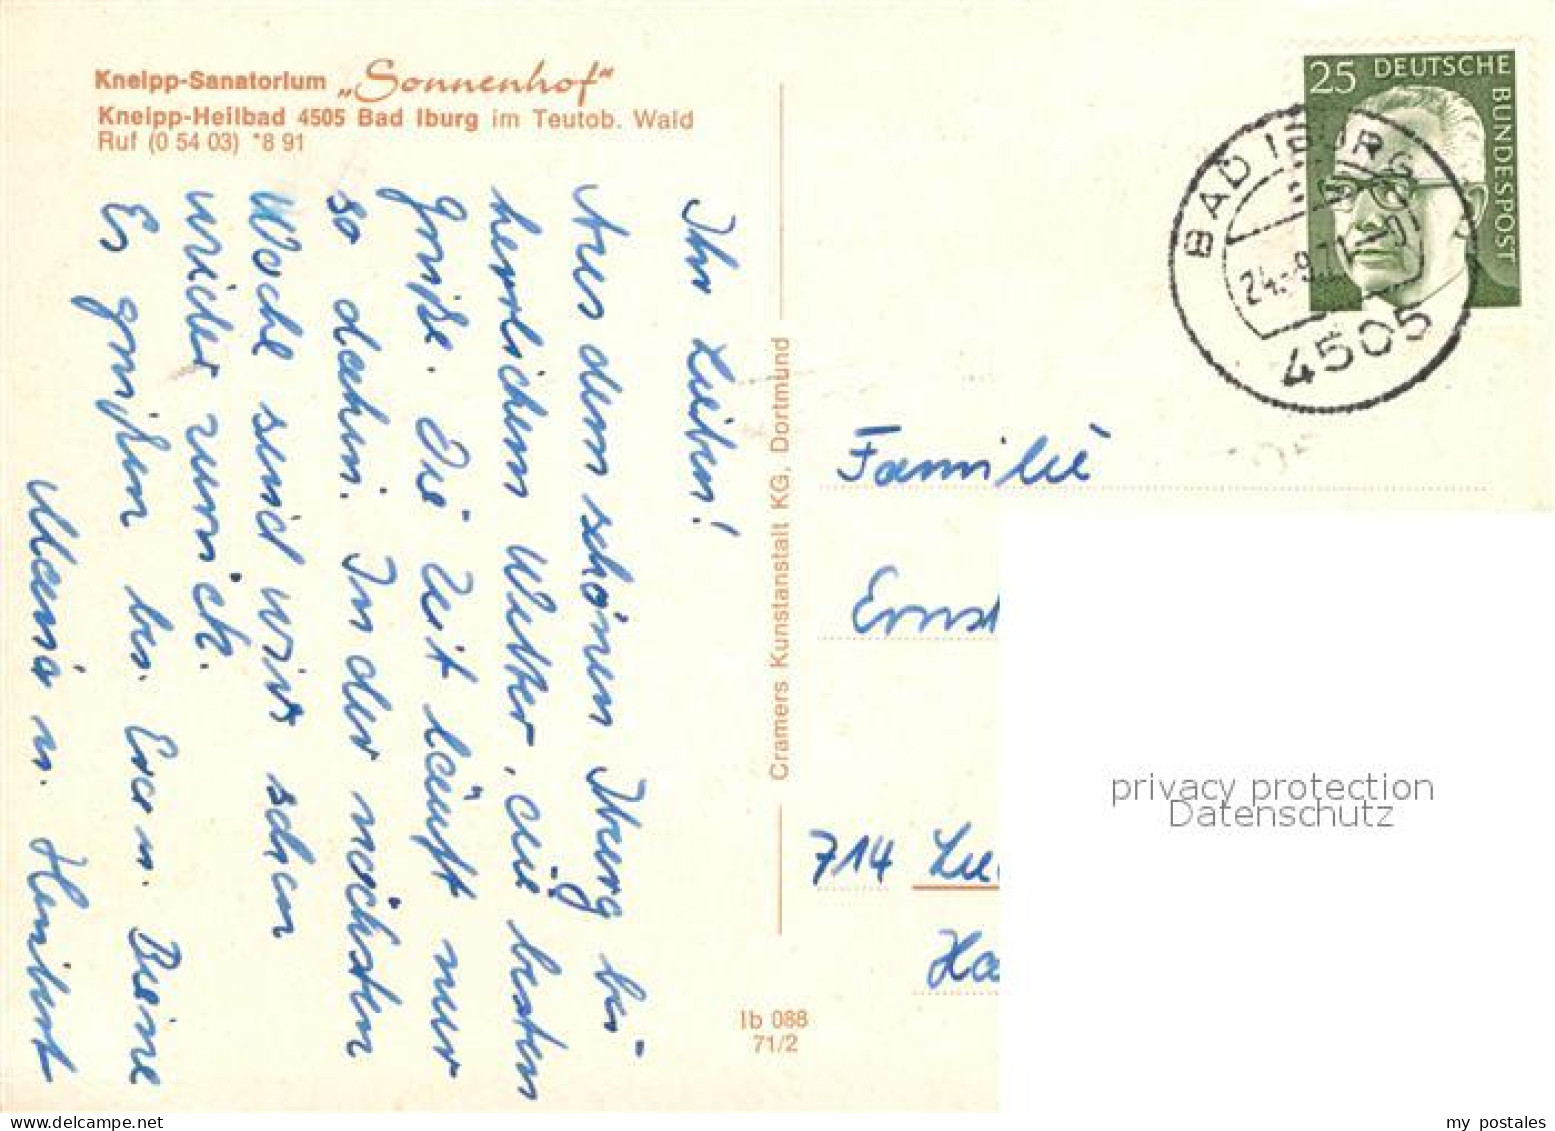 Kneipp-Sanatorium „Sonnenhof"
Kneipp-Heilbad 4505 Bad Iburg im Teutob. Wald
Ruf (0 54 03) *8 91
Ihr Lieben!
Aus dem schönen Iburg bei
herrlichem Wetter, die besten
Grüße. Die Zeit läuft nur
so dahin. In der nächsten
Woche sind wir schon
wieder zurück.
Es grüßen
Cramers Kunstanstalt KG, Dortmund
Ib 088
71/2
25 DEUTSCHE BUNDESPOST
BAD IBURG
4505
Familie
Ernst
714
privacy protection
Datenschutz
my postales